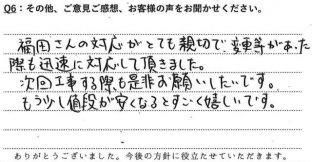 Q6：その他、ご意見ご感想、お客様の声をお聞かせください。
福田さんの対応がとても親切で変更等があった
際も迅速に対応して頂きました。
次回工事する際も是非お願いしたいです。
もう少し値段が安くなるとすごく嬉しいです。
ありがとうございました。今後の方針に役立たせていただきます。